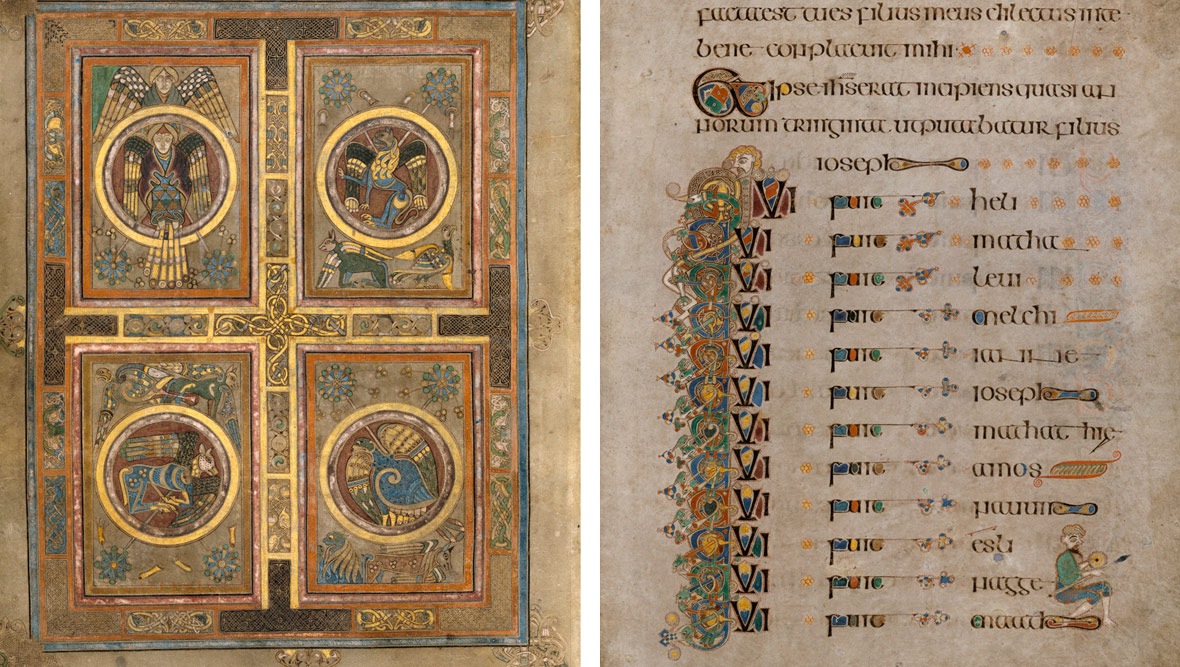 facta est tu es filius meus dilectus in te
bene conplacuit mihi
Et ipse ihs erat incipiens quasi an
norum triginta ut putabatur filius
ioseph
QVI fuit heli
QVI fuit matha
QVI fuit leui
QVI fuit melchi
QVI fuit iannae
QVI fuit ioseph
QVI fuit mathathie
QVI fuit amos
QVI fuit nauum
QVI fuit esli
QVI fuit nagge
QVI fuit maath